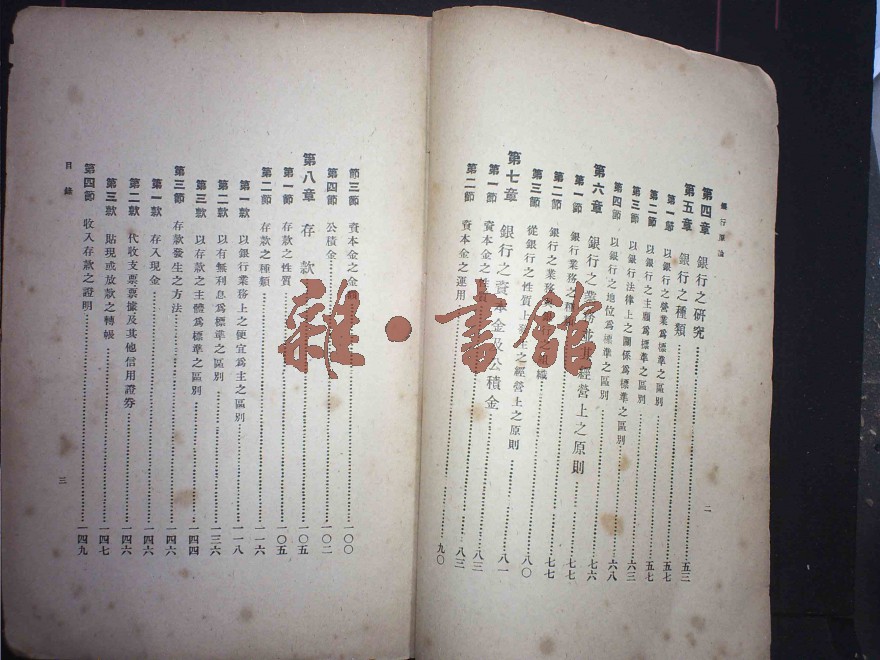 銀行原論
二
第四章 銀行之研究 五三
第五章 銀行之種類 五七
第一節 以銀行之營業爲標準之區別 五七
第二節 以銀行之主顧爲標準之區別 六三
第三節 以銀行法律上之關係爲標準之區別 六八
第四節 以銀行之地位爲標準之區別 七六
第六章 銀行之業務並其經營上之原則 七七
第一節 銀行業務之種 七七
第二節 銀行之業務 織 八〇
第三節 從銀行之性質上 生之經營上之原則 八一
第七章 銀行之資本金及公積金 八三
第一節 資本金之性質 八三
第二節 資本金之運用 九〇
節三節 資本金之金額 一〇〇
第四節 公積金 一〇二
第八章 存款 一〇五
第一節 存款之性質 一〇五
第二節 存款之種類 一一六
第一款 以銀行業務上之便宜爲主之區別 一一八
第二款 以有無利息爲標準之區別 一三六
第三款 以存款之主體爲標準之區別 一四四
第三節 存款發生之方法 一四六
第一款 存入現金 一四六
第二款 代收支票票據及其他信用證券 一四六
第三款 貼現或放款之轉帳 一四七
第四節 收入存款之證明 一四九
目錄
三
雜·書館